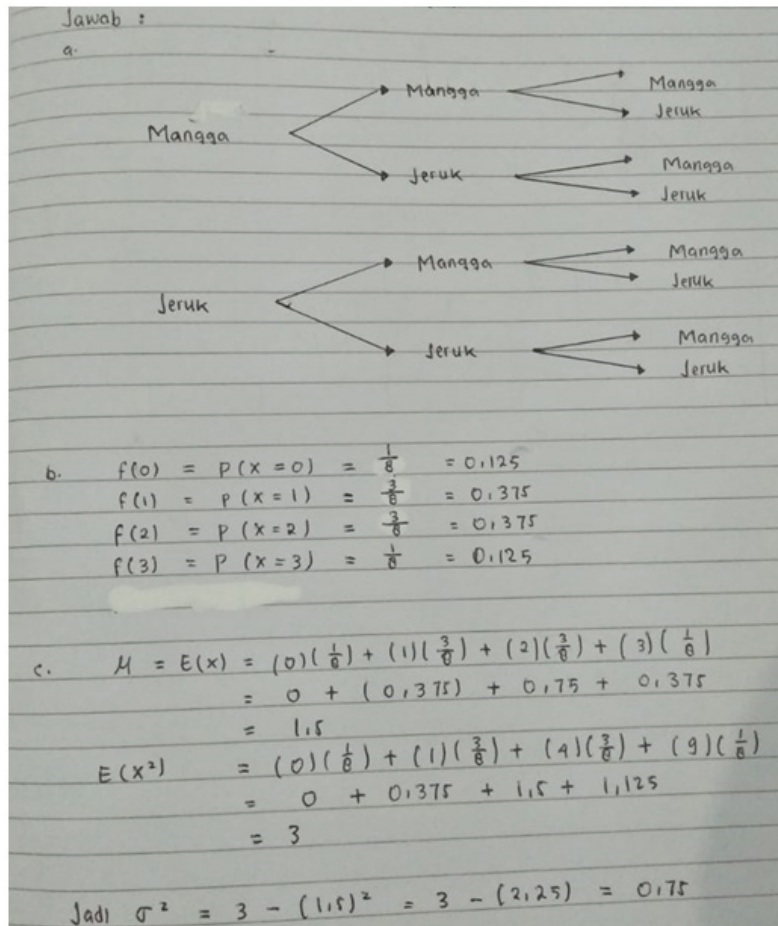 Jawab :
a.
Mangga
Mangga
Jeruk
Mangga
Jeruk
Mangga
Jeruk
Jeruk
Mangga
Jeruk
Mangga
Jeruk
Mangga
Jeruk
b. f(0) = P(x = 0) = 1/8 = 0,125
f(1) = P(x = 1) = 3/8 = 0,375
f(2) = P(x = 2) = 3/8 = 0,375
f(3) = P(x = 3) = 1/8 = 0,125
c. M = E(x) = (0)(1/8) + (1)(3/8) + (2)(3/8) + (3)(1/8)
= 0 + (0,375) + 0,75 + 0,375
= 1,5
E(x²) = (0)(1/8) + (1)(3/8) + (4)(3/8) + (9)(1/8)
= 0 + 0,375 + 1,5 + 1,125
= 3
Jadi σ² = 3 - (1,5)² = 3 - (2,25) = 0,75